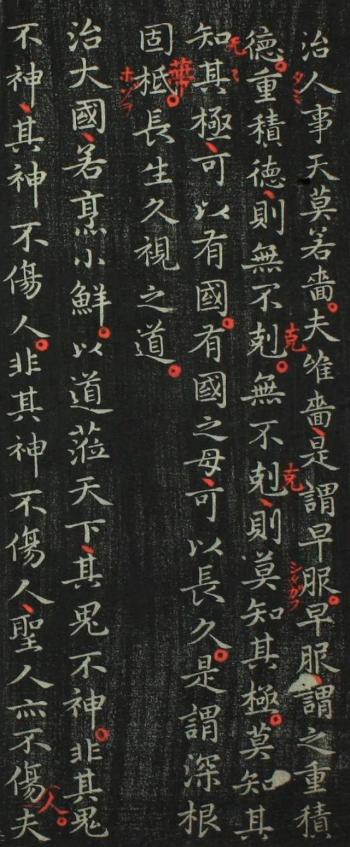 治人事天莫若嗇。夫惟嗇、是謂早服。早服、謂之重積
克
克
德。重積德、則無不剋。無不剋、則莫知其極。莫知其
知其極、可以有國。有國之母、可以長久。是謂深根
固柢。長生久視之道。
治大國、若烹小鮮。以道莅天下、其鬼不神。非其鬼
不神、其神不傷人。非其神不傷人、聖人亦不傷夫
人。